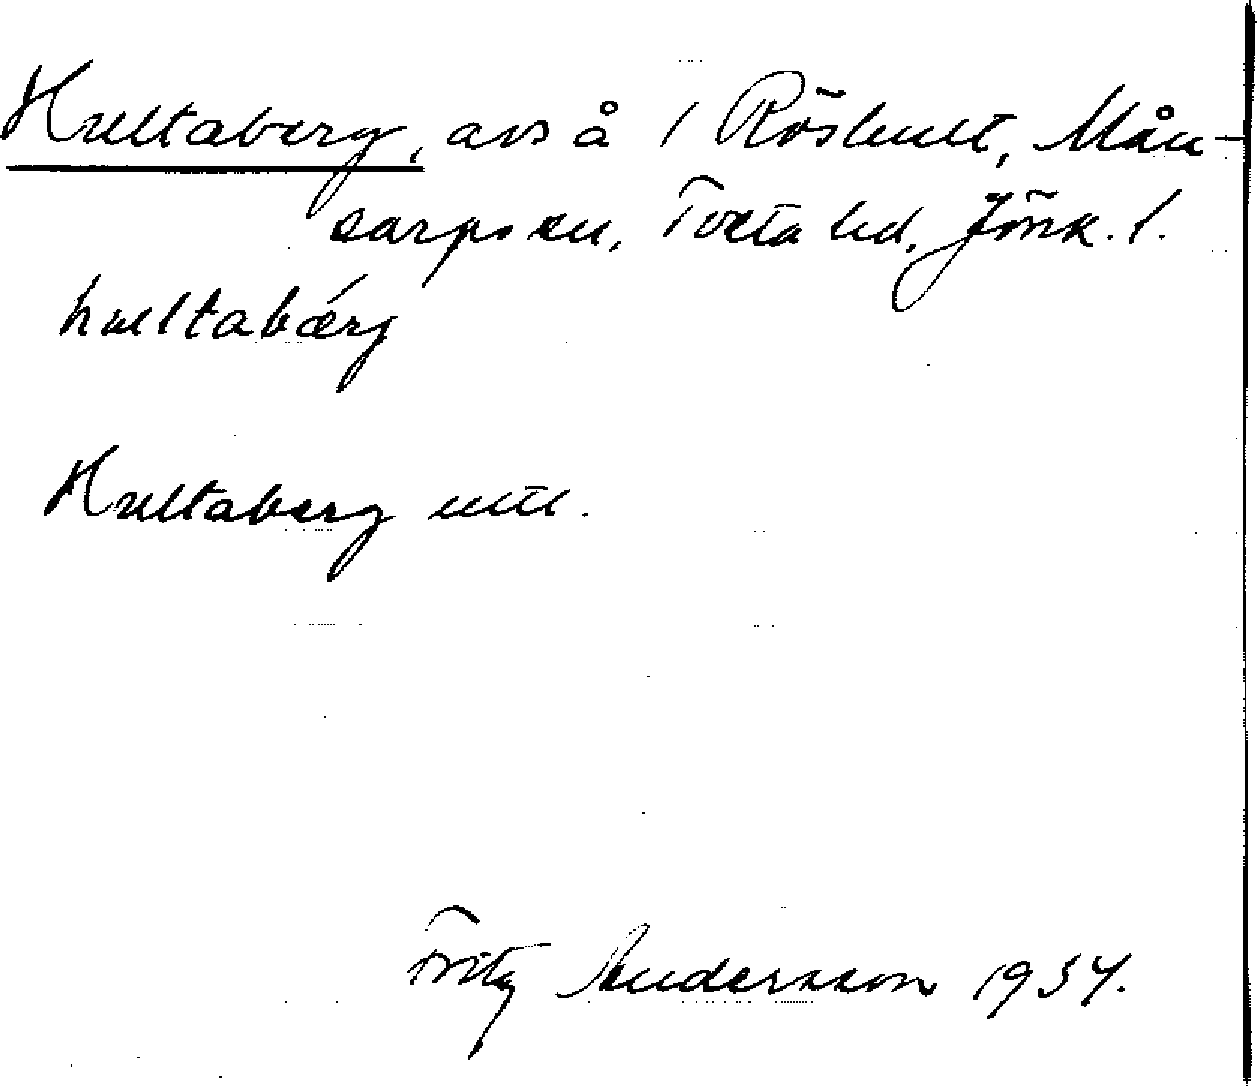 Hultaberg, avs å 1 Röshult, Mån-
sarps sn, Tveta hd, Jönk. l.
hultabærg
Hultaberg uttl.
Fritz Andersson 1934.